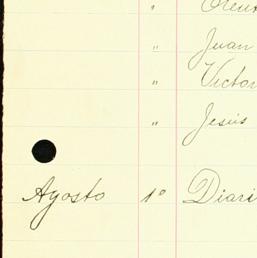 "
" Juan
" Victor
" Jesús
Agosto 1º Diari